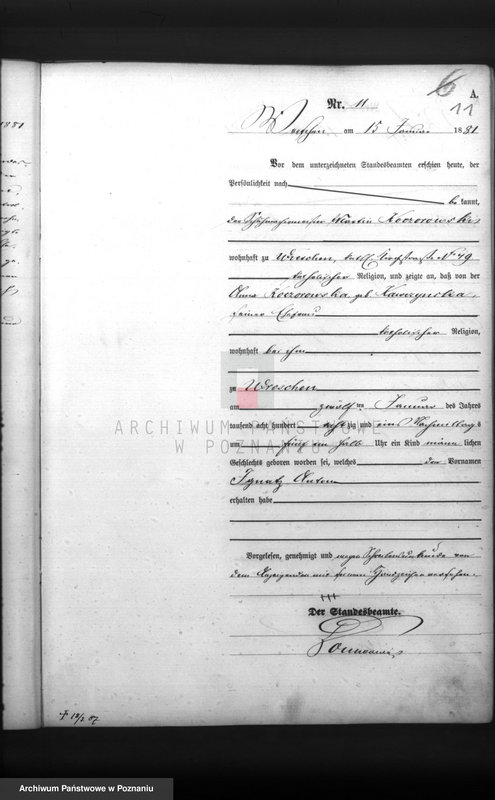 6
A.
11
Nr. 11
Wreschen am 15 Januar 1881
Vor dem unterzeichneten Standesbeamten erschien heute, der
Persönlichkeit nach
bekannt,
der Schuhmachermeister Martin Koczorowski
wohnhaft zu Wreschen, No 49
katholischer Religion, und zeigte an, daß von der
Anna Koczorowska geb Kawczynska,
seiner Ehefrau
katholischer Religion,
wohnhaft bei ihm
zu Wreschen
am zwölften Januar des Jahres
tausend acht hundert achtzig und eins Nachmittags
um fünf ein halb Uhr ein Kind männlichen
Geschlechts geboren worden sei, welches den Vornamen
Ignatz Anton
erhalten habe
Vorgelesen, genehmigt und wegen Schreibensunkunde von
dem Anzeigenden mit seinem Handzeichen versehen.
+++
Der Standesbeamte.
1881
ARCHIWUM PAŃSTWOWE
W POZNANIU
Archiwum Państwowe w Poznaniu